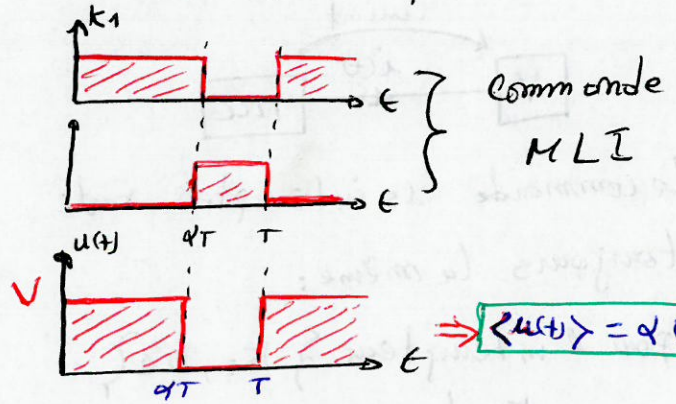 K1
t
Commande
MLI
t
αT T
u(t)
V
t
αT T
⇒ <u(t)> = α